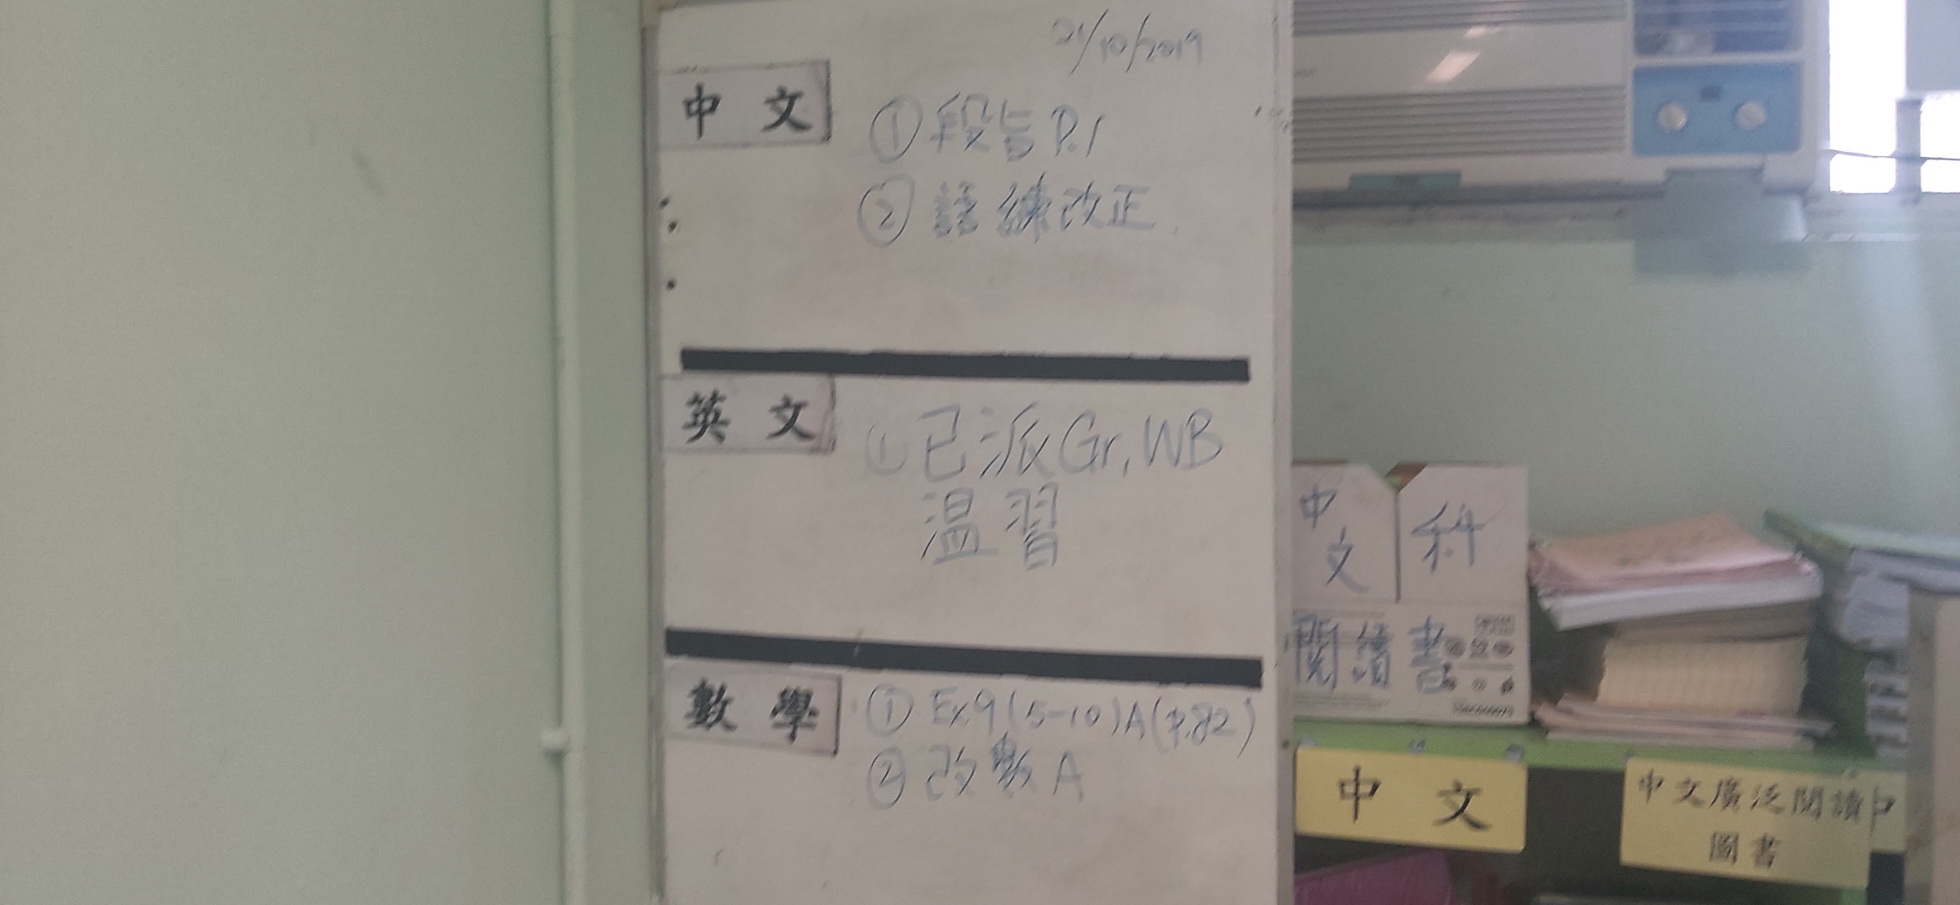 21/10/2019
中文
①段旨P.1
②語練改正
英文
①已派Gr, WB
温習
數學
①Ex9(5-10)A(p.82)
②改數A
中文科
閱讀書
中文
中文廣泛閱讀
圖書